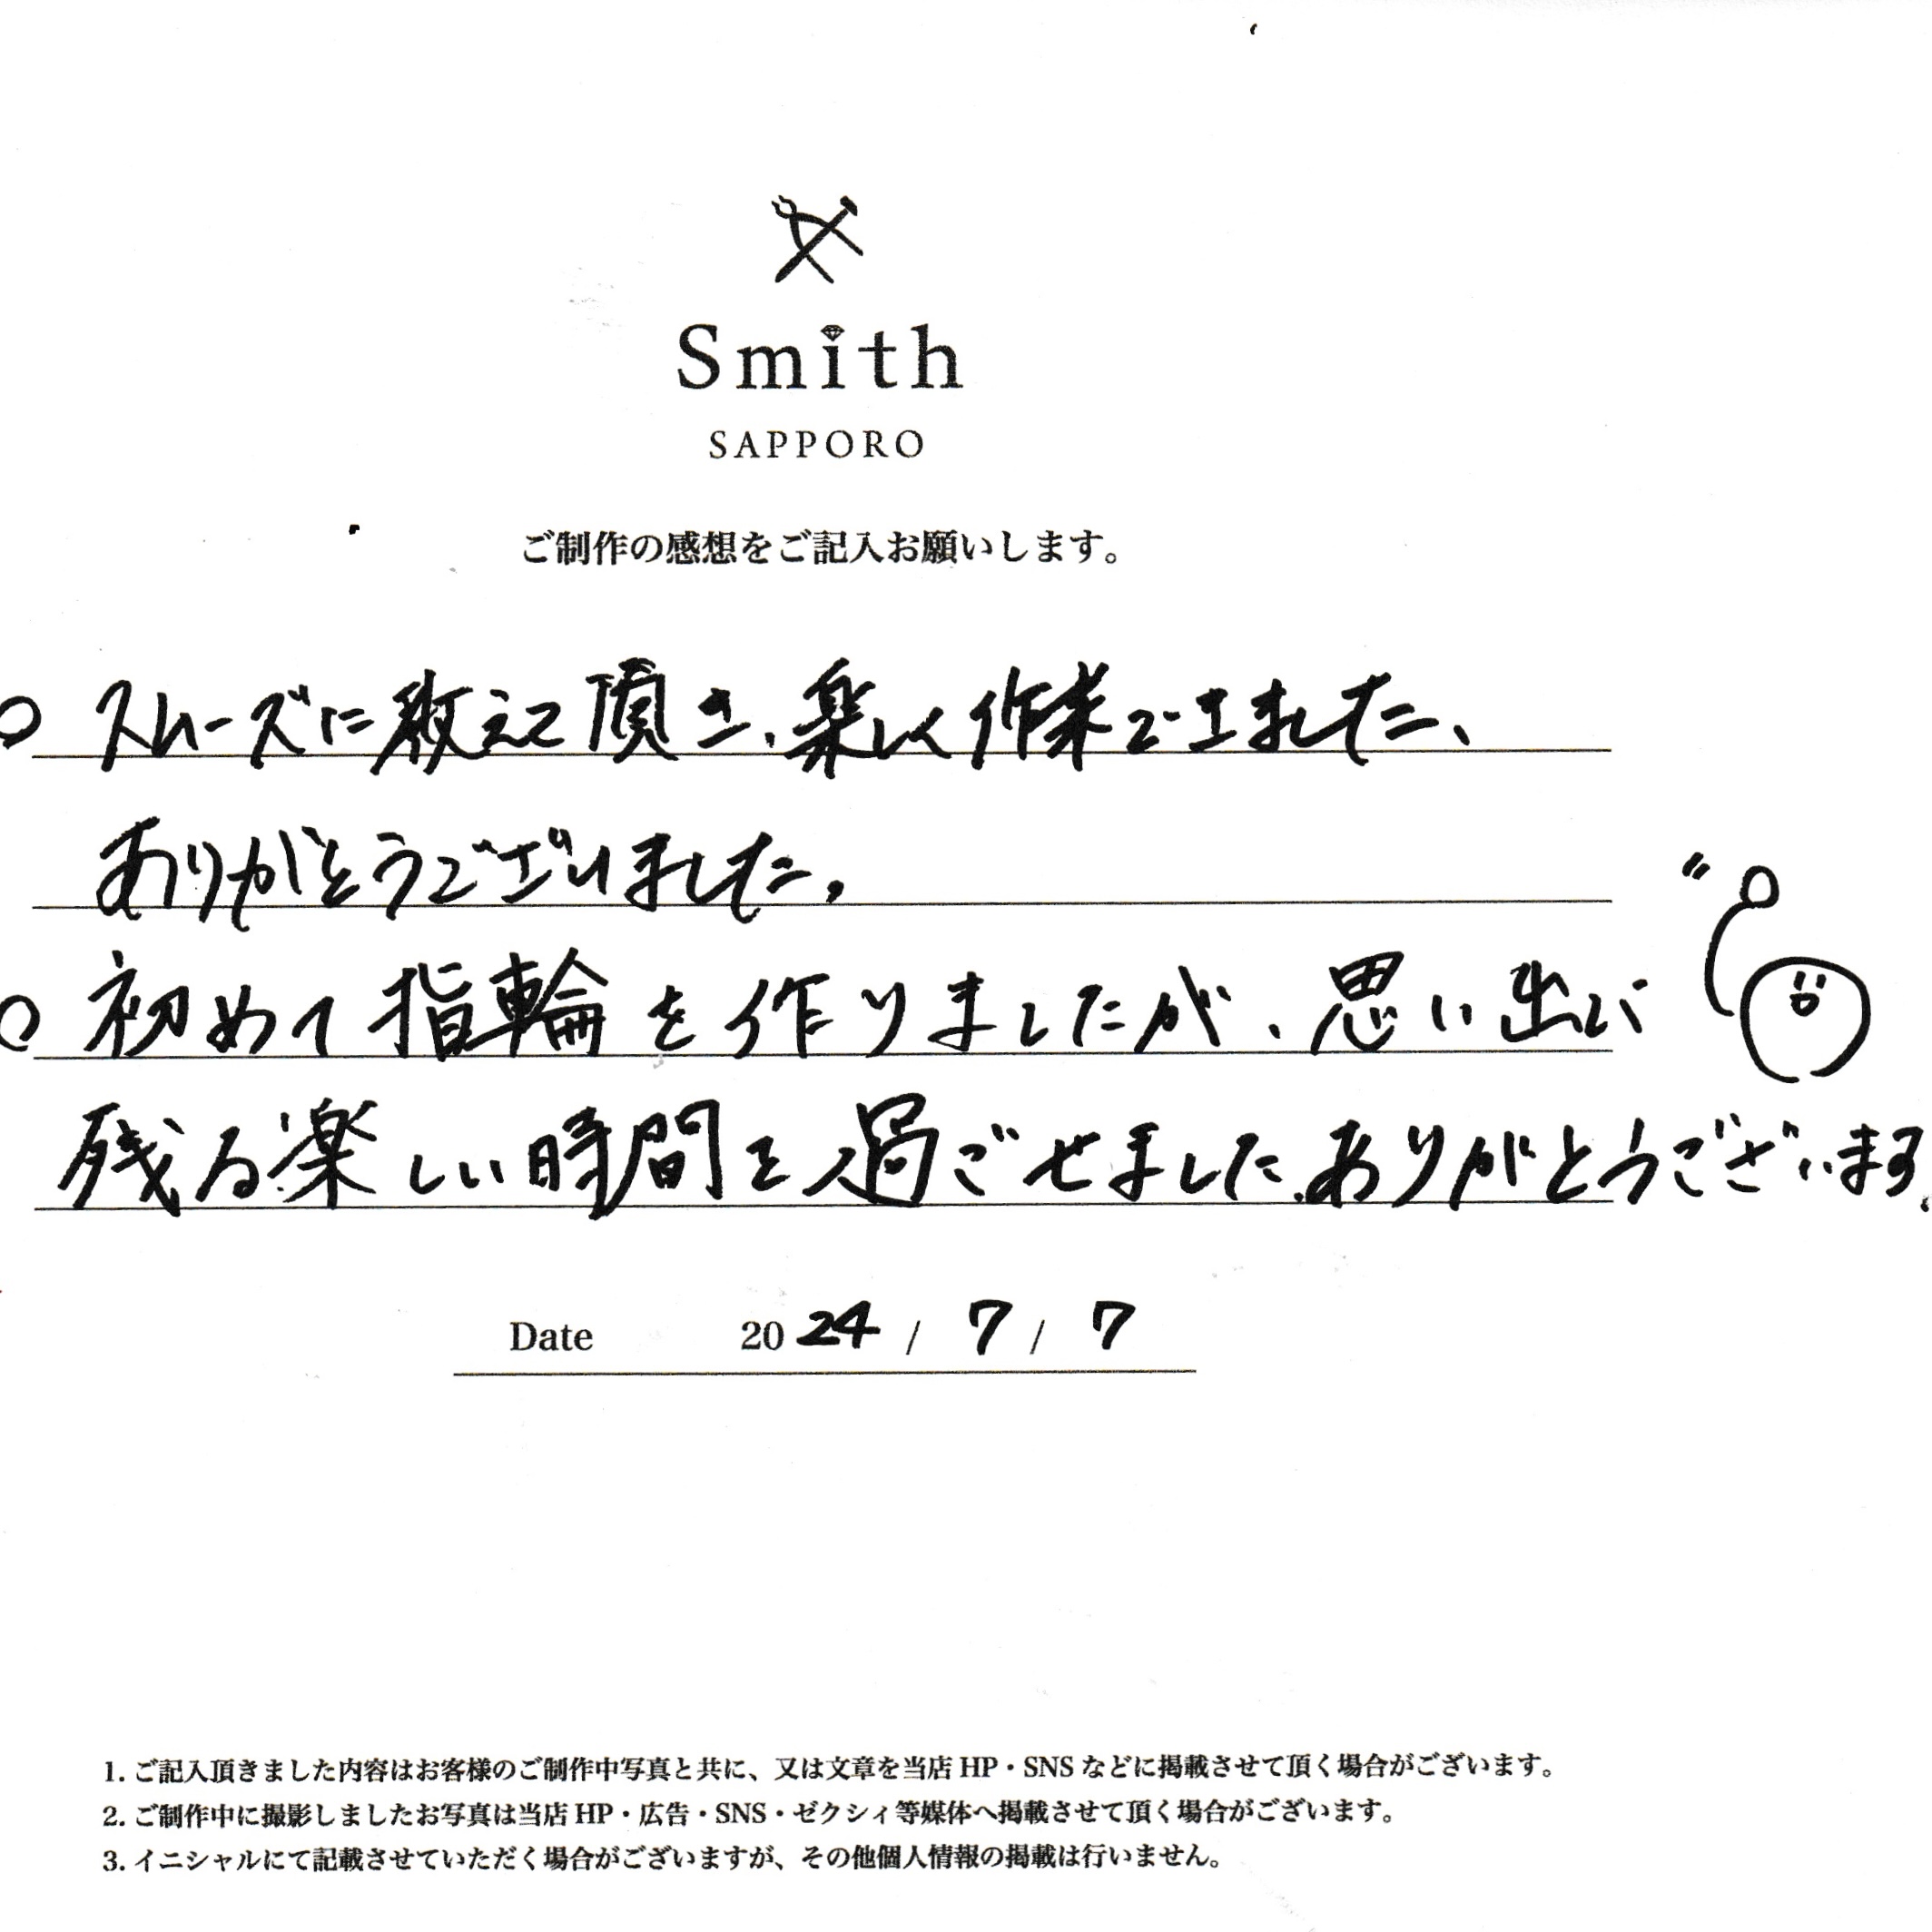 Smith
SAPPORO
ご制作の感想をご記入お願いします。
○ スムーズに教えて頂き、楽しく作業できました、
ありがとうございました。
○ 初めて指輪を作りましたが、思い出に
残る楽しい時間を過ごせました。ありがとうございます。
Date 2024 / 7 / 7
1. ご記入頂きました内容はお客様のご制作中写真と共に、又は文章を当店 HP・SNS などに掲載させて頂く場合がございます。
2. ご制作中に撮影しましたお写真は当店 HP・広告・SNS・ゼクシィ等媒体へ掲載させて頂く場合がございます。
3. イニシャルにて記載させていただく場合がございますが、その他個人情報の掲載は行いません。